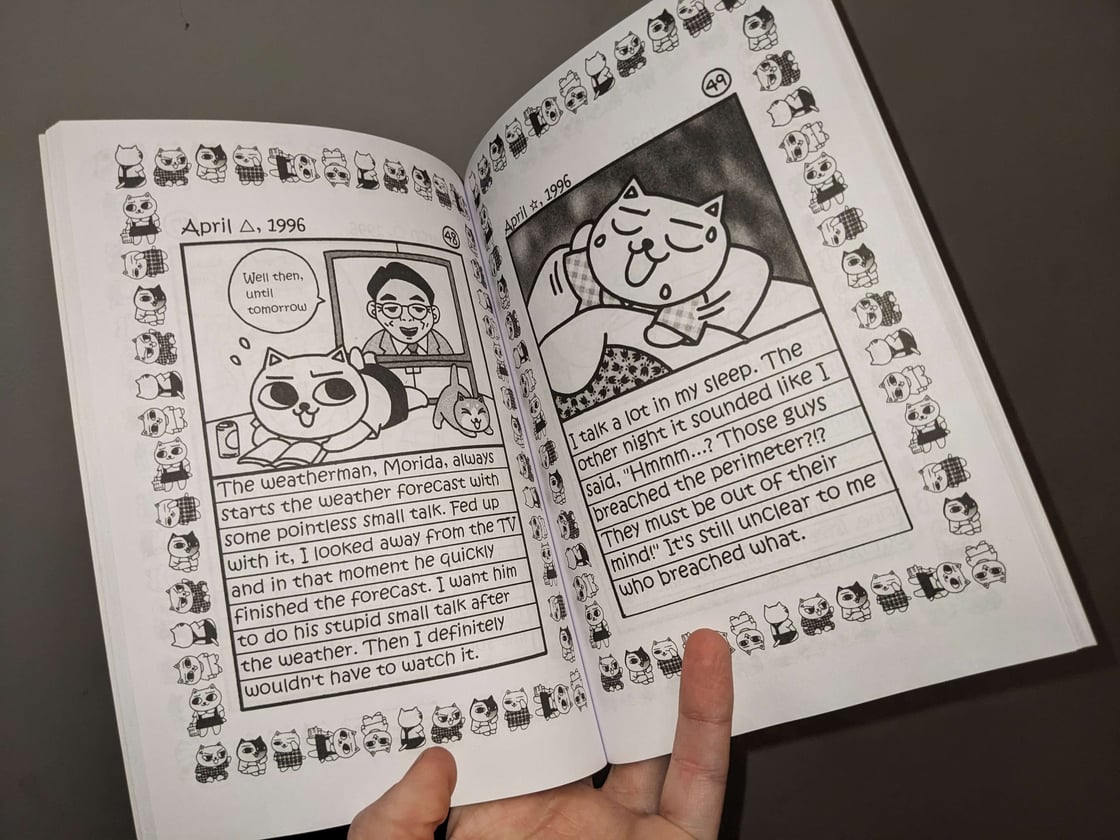 April △, 1996
48
Well then,
until
tomorrow
The weatherman, Morida, always
starts the weather forecast with
some pointless small talk. Fed up
with it, I looked away from the TV
and in that moment he quickly
finished the forecast. I want him
to do his stupid small talk after
the weather. Then I definitely
wouldn't have to watch it.
April ☆, 1996
49
I talk a lot in my sleep. The
other night it sounded like I
said, "Hmmm...? Those guys
breached the perimeter?!?
They must be out of their
mind!" It's still unclear to me
who breached what.